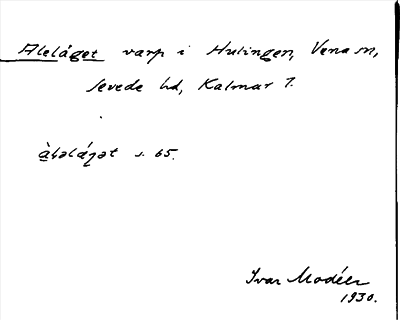 Aleláget varp i Hulingen, Vena sn,
Sevede hd, Kalmar l.
s. 65.
Ivar Modéer
1930.